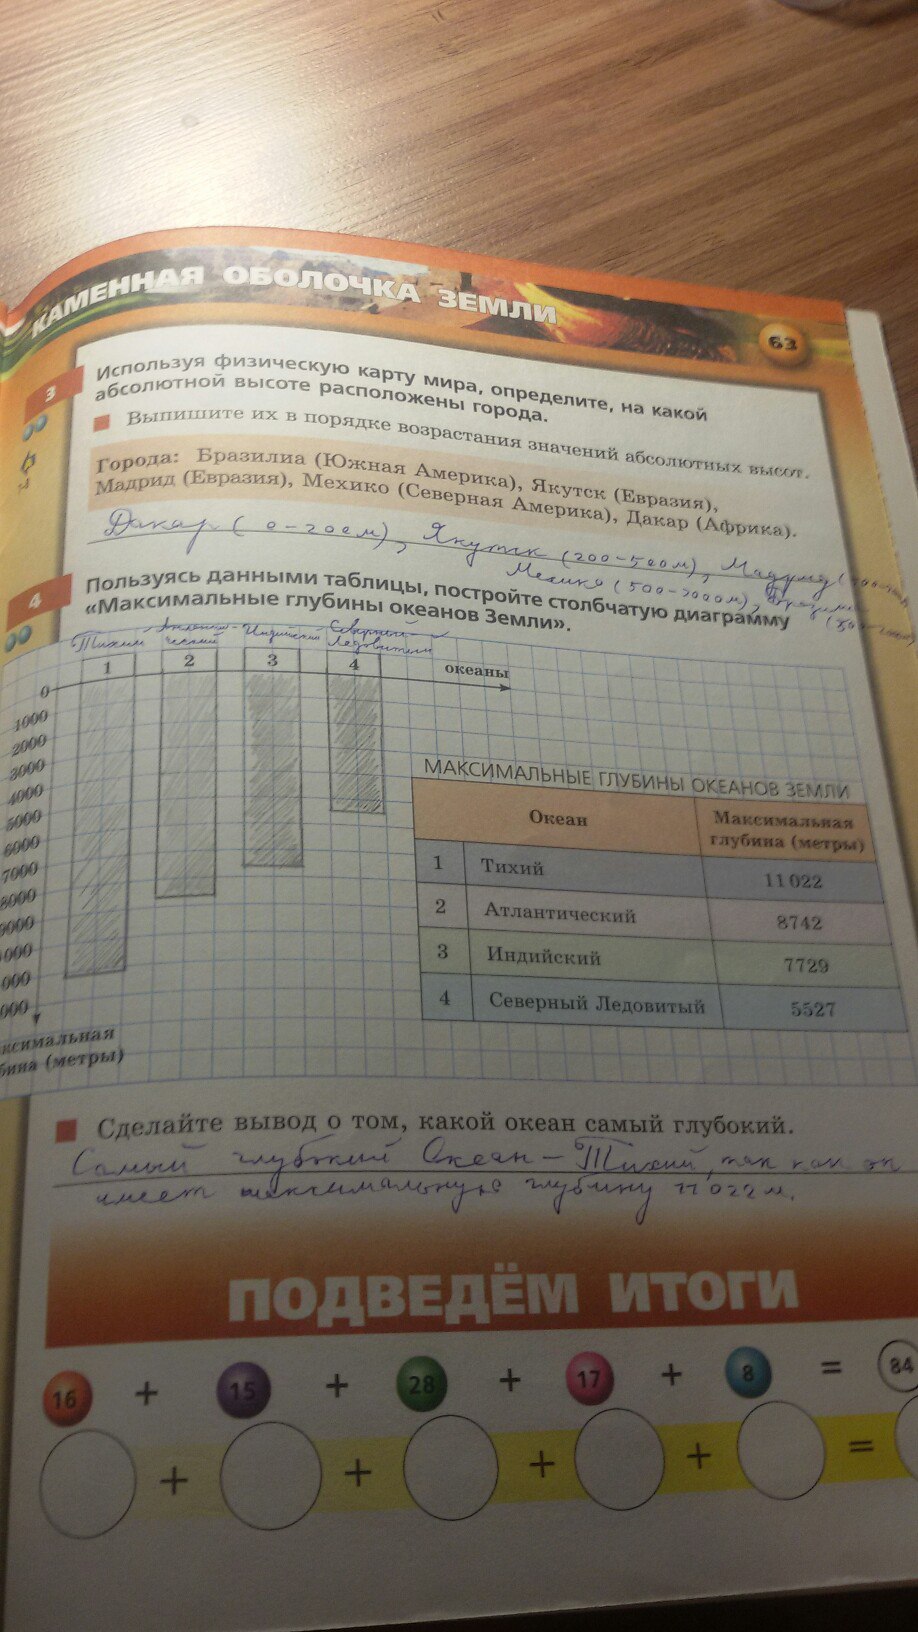 КАМЕННАЯ ОБОЛОЧКА ЗЕМЛИ
63
3
Используя физическую карту мира, определите, на какой
абсолютной высоте расположены города.
Выпишите их в порядке возрастания значений абсолютных высот.
Города: Бразилиа (Южная Америка), Якутск (Евразия),
Мадрид (Евразия), Мехико (Северная Америка), Дакар (Африка).
Дакар ( 0-200м), Якутск (200-500м), Мадрид
Мехико (500-2000м), Бразилиа
4
Пользуясь данными таблицы, постройте столбчатую диаграмму
«Максимальные глубины океанов Земли».
Тихий Атланти- Индийский Северный
ческий Ледовитый
1 2 3 4
океаны
0
1000
2000
3000
4000
5000
6000
7000
8000
9000
000
000
000
ксимальная
бина (метры)
МАКСИМАЛЬНЫЕ ГЛУБИНЫ ОКЕАНОВ ЗЕМЛИ
Океан Максимальная
глубина (метры)
1 Тихий 11 022
2 Атлантический 8742
3 Индийский 7729
4 Северный Ледовитый 5527
Сделайте вывод о том, какой океан самый глубокий.
Самый глубокий Океан – Тихий, так как он
имеет максимальную глубину 11 022 м.
ПОДВЕДЁМ ИТОГИ
16 + 15 + 28 + 17 + 8 = 84
+ + + + =